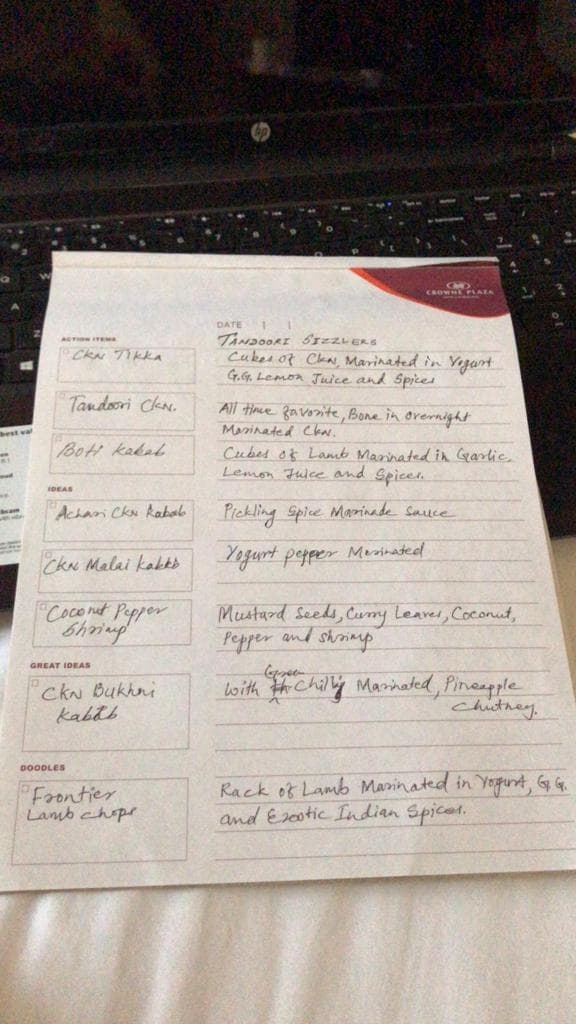 hp
CROWNE PLAZA
DATE
TANDOORI SIZZLERS
ACTION ITEMS
CKN TIKKA
Cubes of Ckn, Marinated in Yogurt
G.G. Lemon Juice and Spices
Tandoori Ckn.
All time favorite, Bone in overnight
Marinated Ckn.
Boti Kabab
Cubes of Lamb Marinated in Garlic,
Lemon Juice and Spices.
IDEAS
Achari Ckn Kabab
Pickling Spice Marinade Sauce
Ckn Malai Kabab
Yogurt pepper Marinated
Coconut Pepper
Shrimp
Mustard Seeds, Curry Leaves, Coconut,
Pepper and shrimp
GREAT IDEAS
CKN Bukhri
Kabab
Green
with Chilly Marinated, Pineapple
Chutney.
DOODLES
Frontier
Lamb chops
Rack of Lamb Marinated in Yogurt, G.G.
and Exotic Indian Spices.